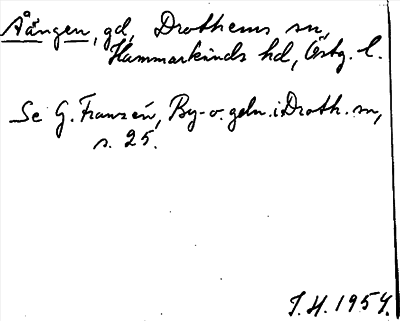 Aängen, gd, Drothems sn,
Hammarkinds hd, Östg. l.
Se G. Franzén, By- o. gdn. i Droth. sn,
s. 25.
J.H. 1954.